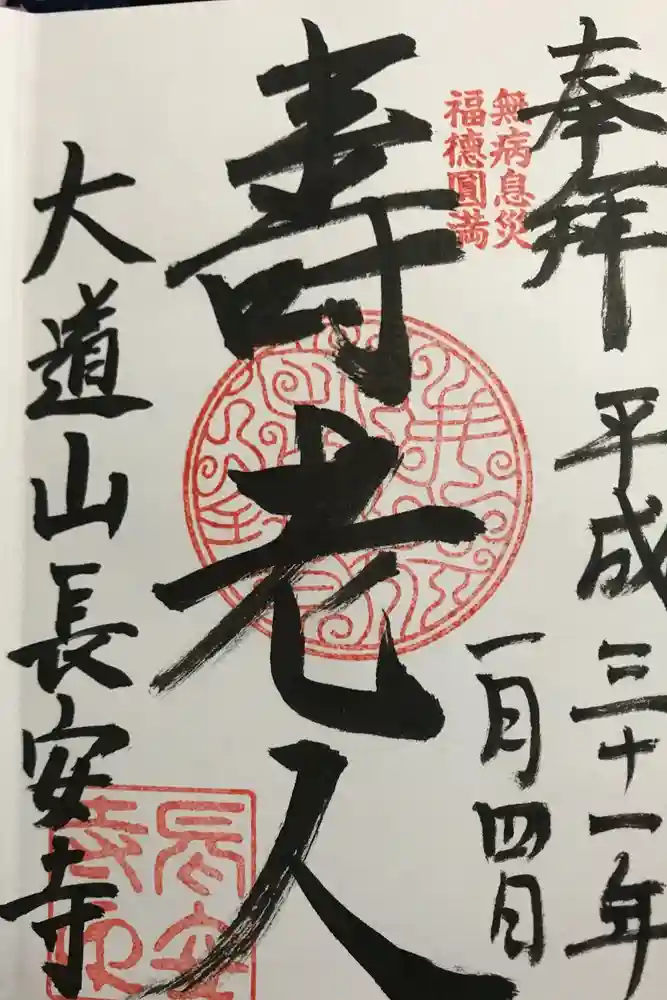 奉拝
平成三十一年
一月四日
無病息災
福德圓満
壽老人
大道山長安寺